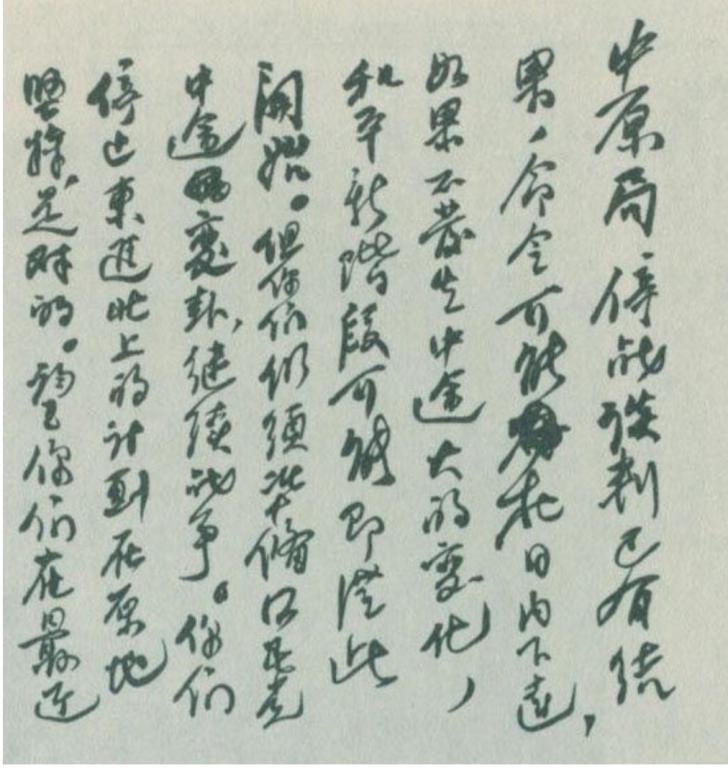 中原局停战谈判已有结
果，命令可能在日内下达，
如果不发生中途大的变化，
和平新阶段可能即从此
开始。但你们仍须准备
中途变卦，继续战争。你们
停止东进北上的计划在原地
坚持，是对的。望你们在最近